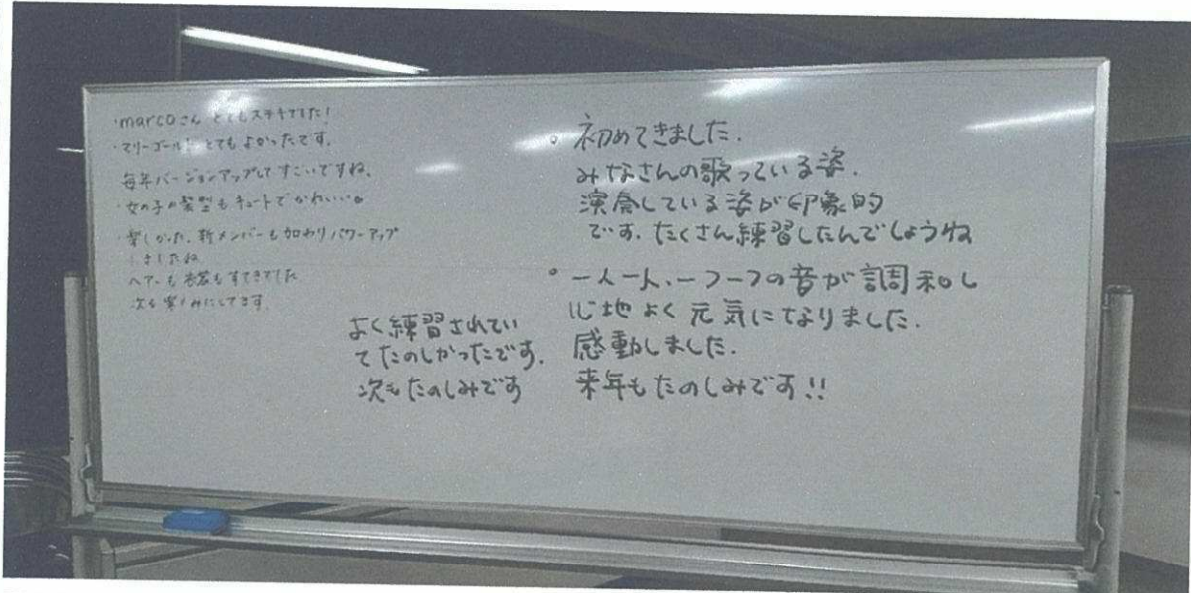 ・marcoさん とてもステキでした!
・マリーゴールド とてもよかったです。
毎年バージョンアップしてすごいですね。
・女の子の髪型もキュートでかわいい。
・楽しかった。新メンバーも加わりパワーアップ
しましたね
ヘアーも衣装もすてきでした
次も楽しみにしてます。
よく練習されてい
てたのしかったです。
次もたのしみです
。初めてきました.
みなさんの歌っている姿.
演奏している姿が印象的
です. たくさん練習したんでしょうね
。一人一人、一つ一つの音が調和し
心地よく元気になりました.
感動しました.
来年もたのしみです!!